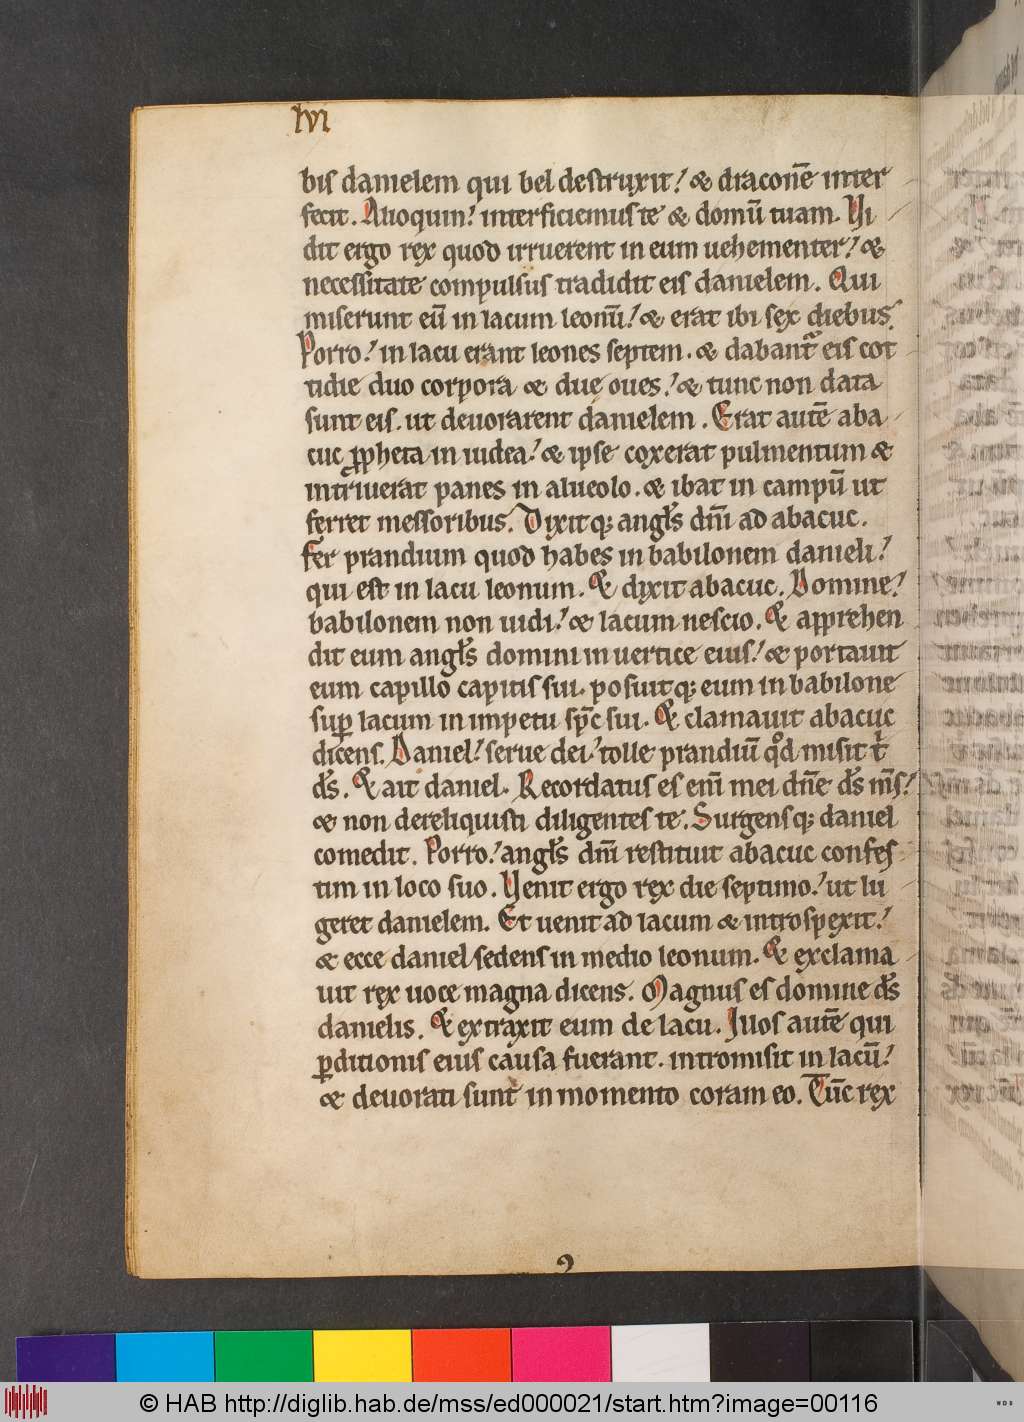 lvi
bis danielem qui bel destruxit! & draconē inter
fecit. Alioquin! interficiemus te & domū tuam. Vi
dit ergo rex quod irruerent in eum uehementer! &
necessitate compulsus tradidit eis danielem. Qui
miserunt eū in lacum leonū! & erat ibi sex diebus.
Porro! in lacu erant leones septem. & dabant᷑ eis cot
tidie duo corpora & due oues! & tunc non data
sunt eis. ut deuorarent danielem. Erat autē aba
cuc ꝓpheta in iudea! & ipse coxerat pulmentum &
intriuerat panes in alueolo. & ibat in campū ut
ferret messoribus. Dixitq; angl̄s dn̄i ad abacuc.
fer prandium quod habes in babilonem danieli!
qui est in lacu leonum. & dixit abacuc. Domine!
babilonem non uidi! & lacum nescio. & apprehen
dit eum angl̄s domini in uertice eius! & portauit
eum capillo capitis sui. posuitq; eum in babilone
suꝑ lacum in impetu sp̄c sui. & clamauit abacuc
dicens. Daniel! serue dei! tolle prandiū qͦd misit tͥ
ds̄. & ait daniel. Recordatus es eni᷑ mei dn̄e ds̄ m̄s!
& non dereliquisti diligentes te. Surgensq; daniel
comedit. Porro! angl̄s dn̄i restituit abacuc confes
tim in loco suo. Venit ergo rex die septimo! ut lu
geret danielem. Et uenit ad lacum & introspexit!
& ecce daniel sedens in medio leonum. & exclama
uit rex uoce magna dicens. Magnus es domine ds̄
danielis. & extraxit eum de lacu. Illos autē qui
ꝑditionis eius causa fuerant. intromisit in lacū!
& deuorati sunt in momento coram eo. Tūc rex
© HAB http://diglib.hab.de/mss/ed000021/start.htm?image=00116